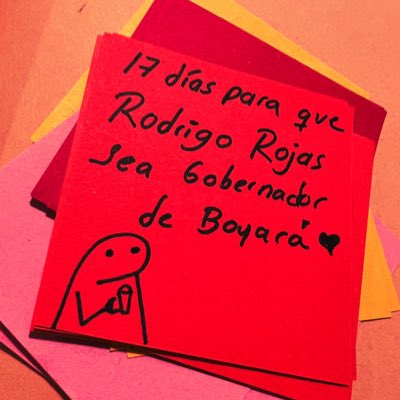 17 días para que
Rodrigo Rojas
sea Gobernador
de Boyará